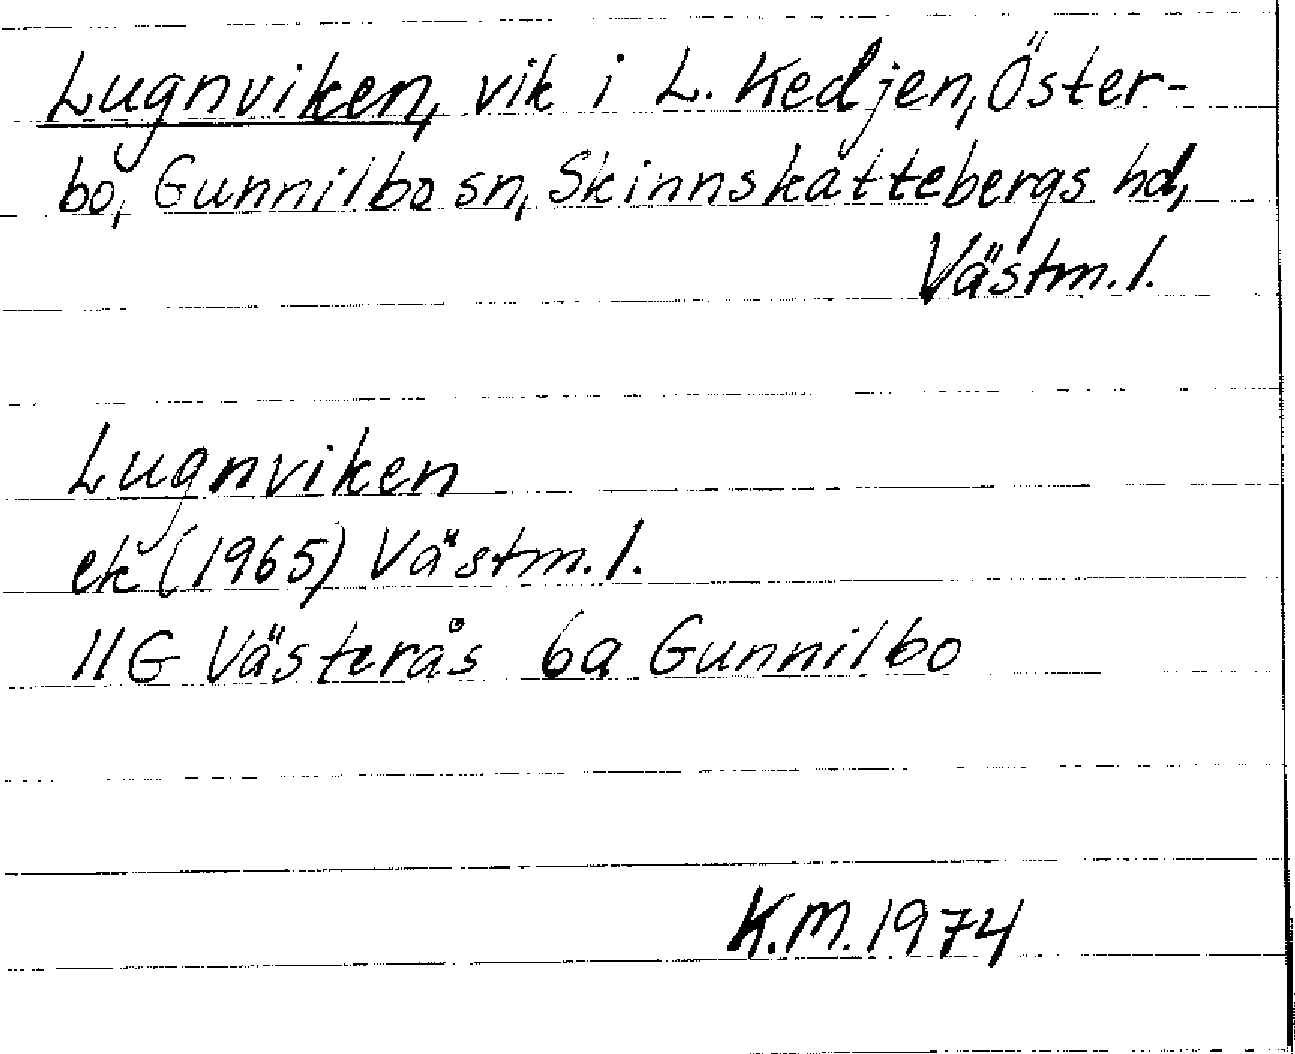 Lugnviken, vik i L. Kedjen, Öster-
bo, Gunnilbo sn, Skinnskattebergs hd,
Västm.l.
Lugnviken
ek (1965) Västm.l.
11G Västerås 6a Gunnilbo
K.M. 1974